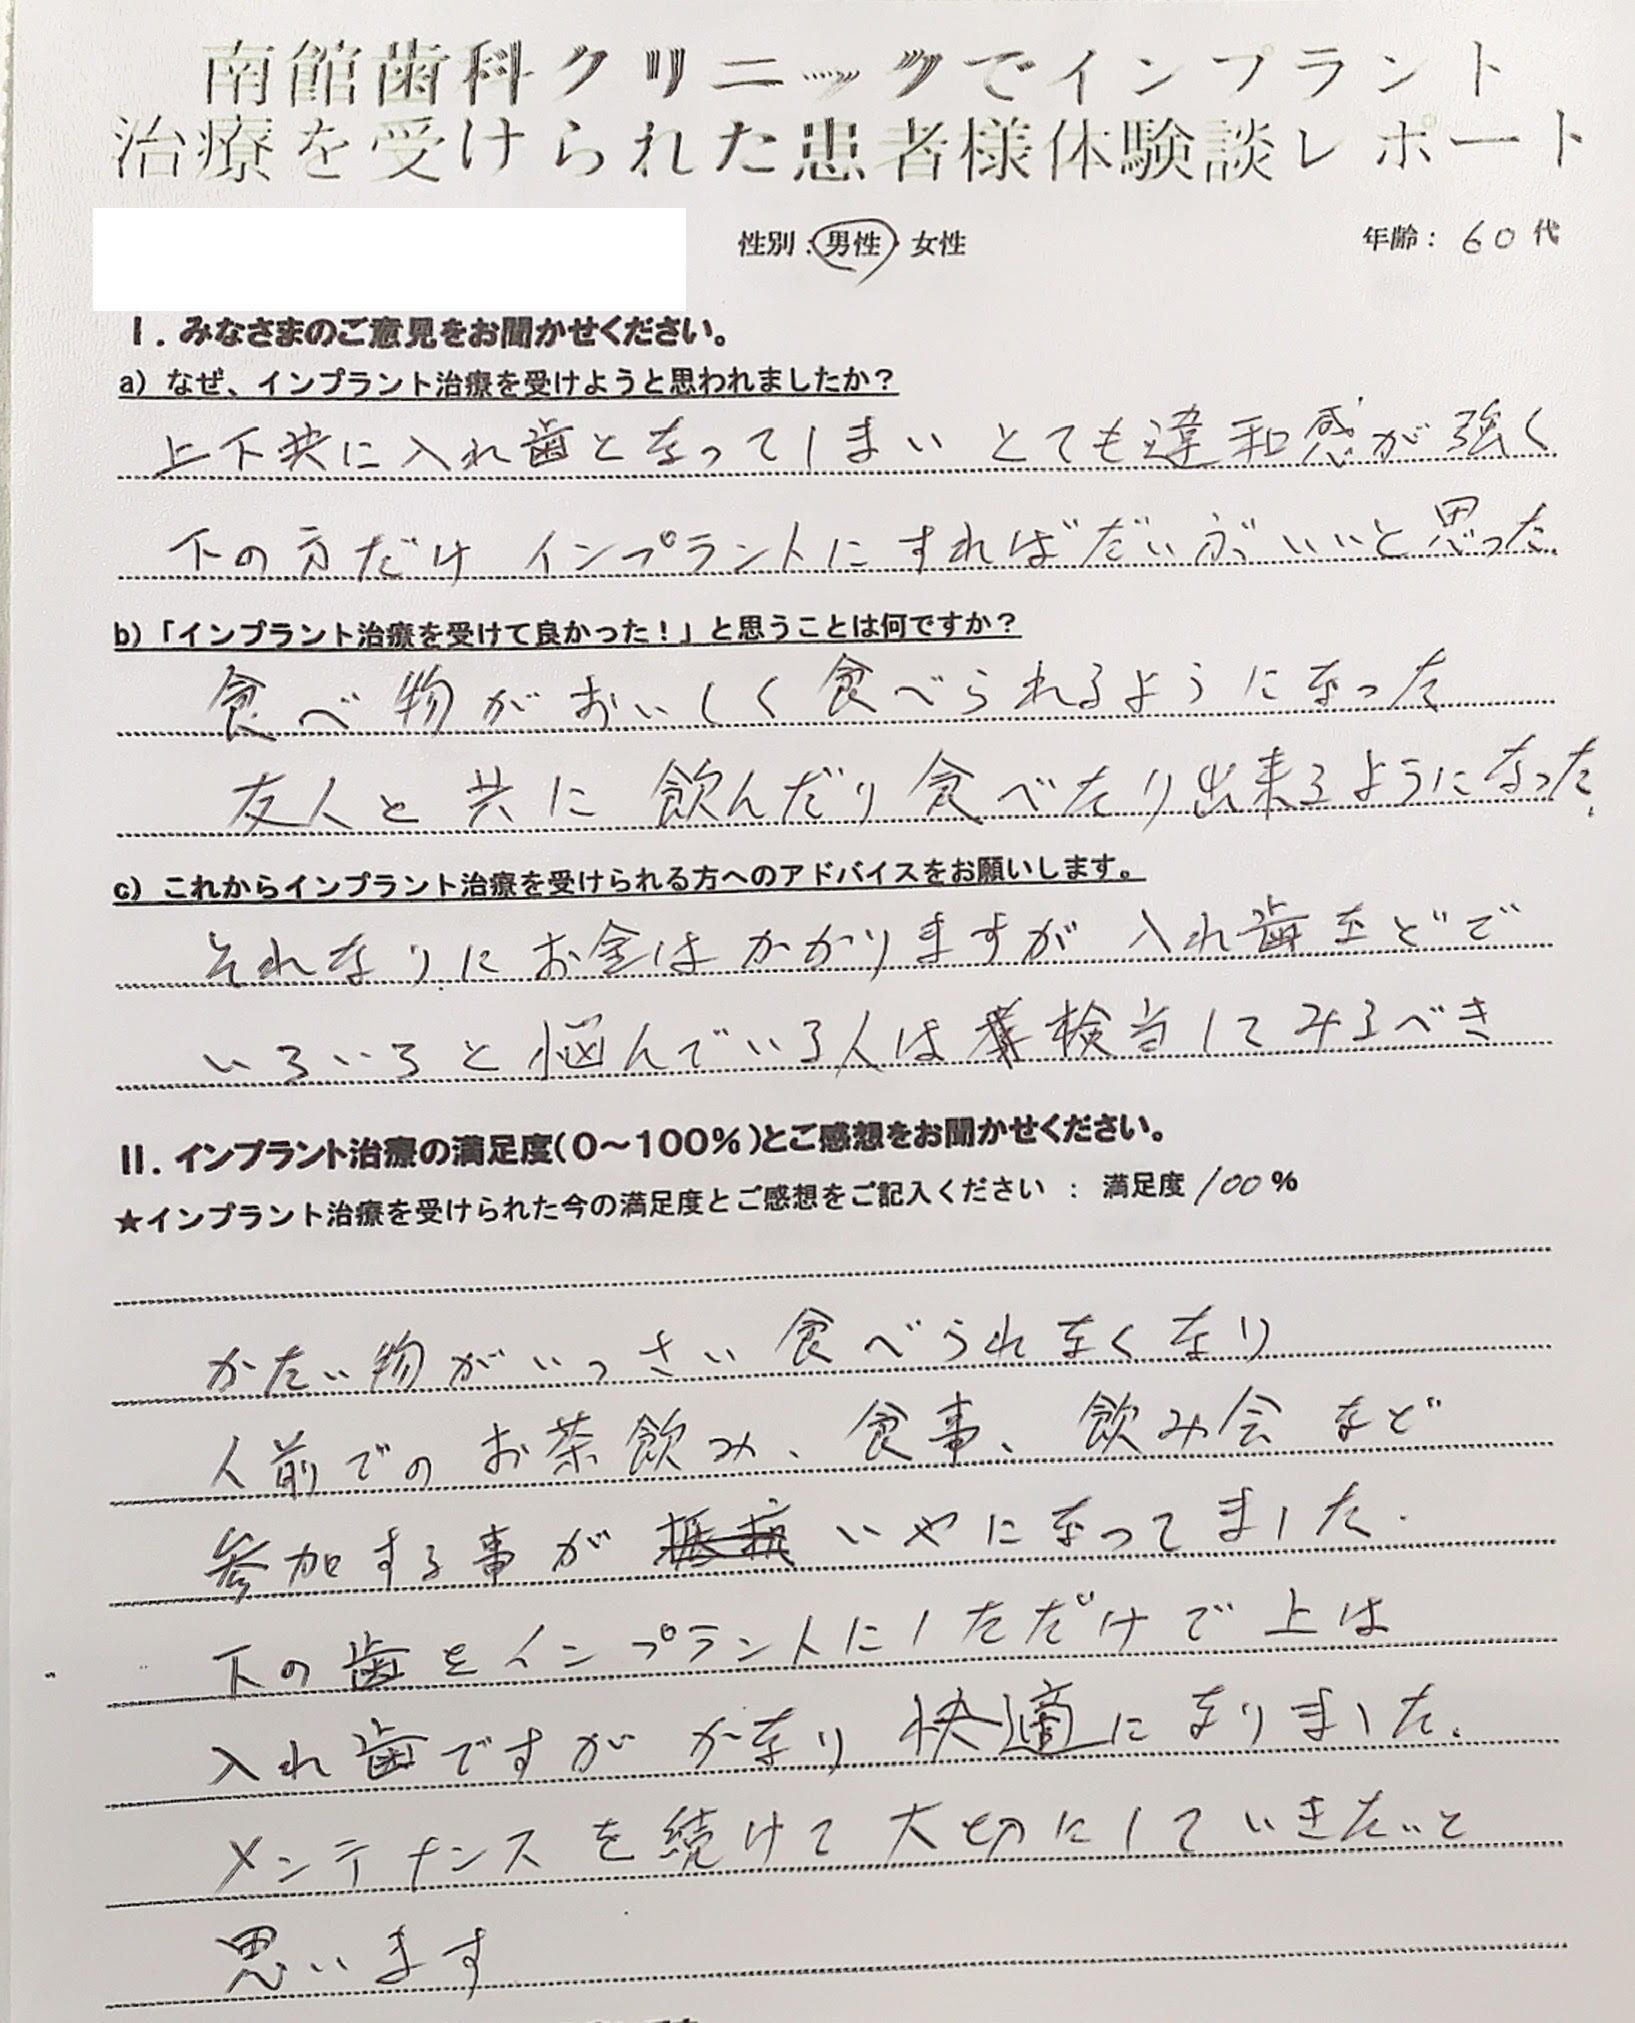 南館歯科クリニックでインプラント
治療を受けられた患者様体験談レポート
性別：男性・女性
年齢：60代
I. みなさまのご意見をお聞かせください。
a) なぜ、インプラント治療を受けようと思われましたか？
上下共に入れ歯となってしまい とても違和感が強く
下の方だけ インプラントにすればだいぶいいと思った.
b)「インプラント治療を受けて良かった！」と思うことは何ですか？
食べ物がおいしく食べられるようになった
友人と共に 飲んだり食べたり出来るようになった.
c) これからインプラント治療を受けられる方へのアドバイスをお願いします。
それなりにお金はかかりますが 入れ歯などで
いろいろと悩んでいる人は検当してみるべき
II. インプラント治療の満足度(0～100%)とご感想をお聞かせください。
★インプラント治療を受けられた今の満足度とご感想をご記入ください ： 満足度 100 %
かたい物がいっさい食べられなくなり
人前でのお茶飲み、食事、飲み会など
参加する事が 抵抗 いやになってました.
下の歯をインプラントにしただけで上は
入れ歯ですが かなり快適になりました.
メンテナンスを続けて大切にしていきたいと
思います